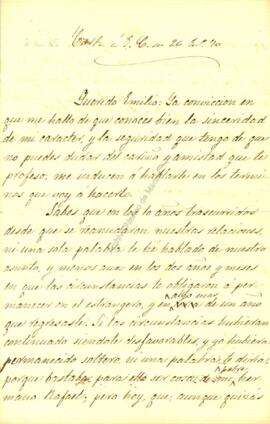 Carta á E. C. en 26 de S. 70
Querido Emilio: La conviccion en
que me hallo de que conoces bien la sinceridad
de mi caracter, y la seguridad que tengo de que
no puedes dudar del cariño y amistad que te
profeso, me inducen á hablarte en los termi
nos que voy á hacerlo.
Sabes que en los 10 años trascurridos
desde que se reanudaron nuestras relaciones,
ni una sola palabra te he hablado de nuestro
asunto, y menos aun en los dos años y meses
en que las circunstancias te obligaron á per
manecer en el estrangero, y en algo mas de un año
que regresaste. Si las circunstancias hubieran
continuado siendote desfavorables, y yo hubiera
permanecido soltero, ni una palabra te diria;
porque bastaba para ello ser cosa de mi pobre her
mano Rafael; pero hoy, que, aunque quizás